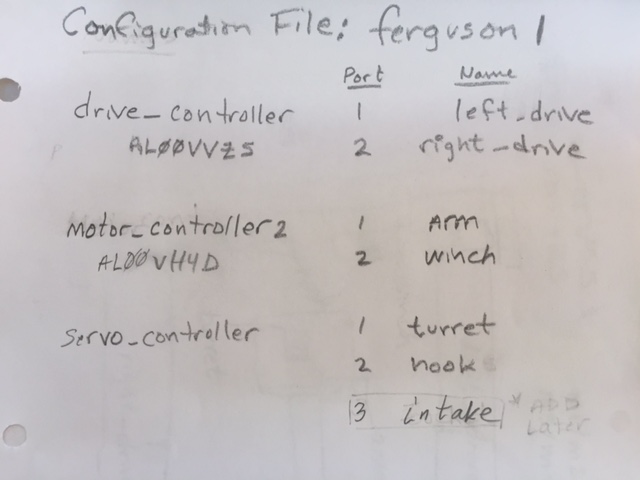 Configuration File: ferguson 1
Port Name
drive_controller 1 left_drive
ALØØVVZS 2 right_drive
Motor_controller 2 1 Arm
ALØØVH4D 2 winch
Servo_controller 1 turret
2 hook
3 intake *ADD
Later